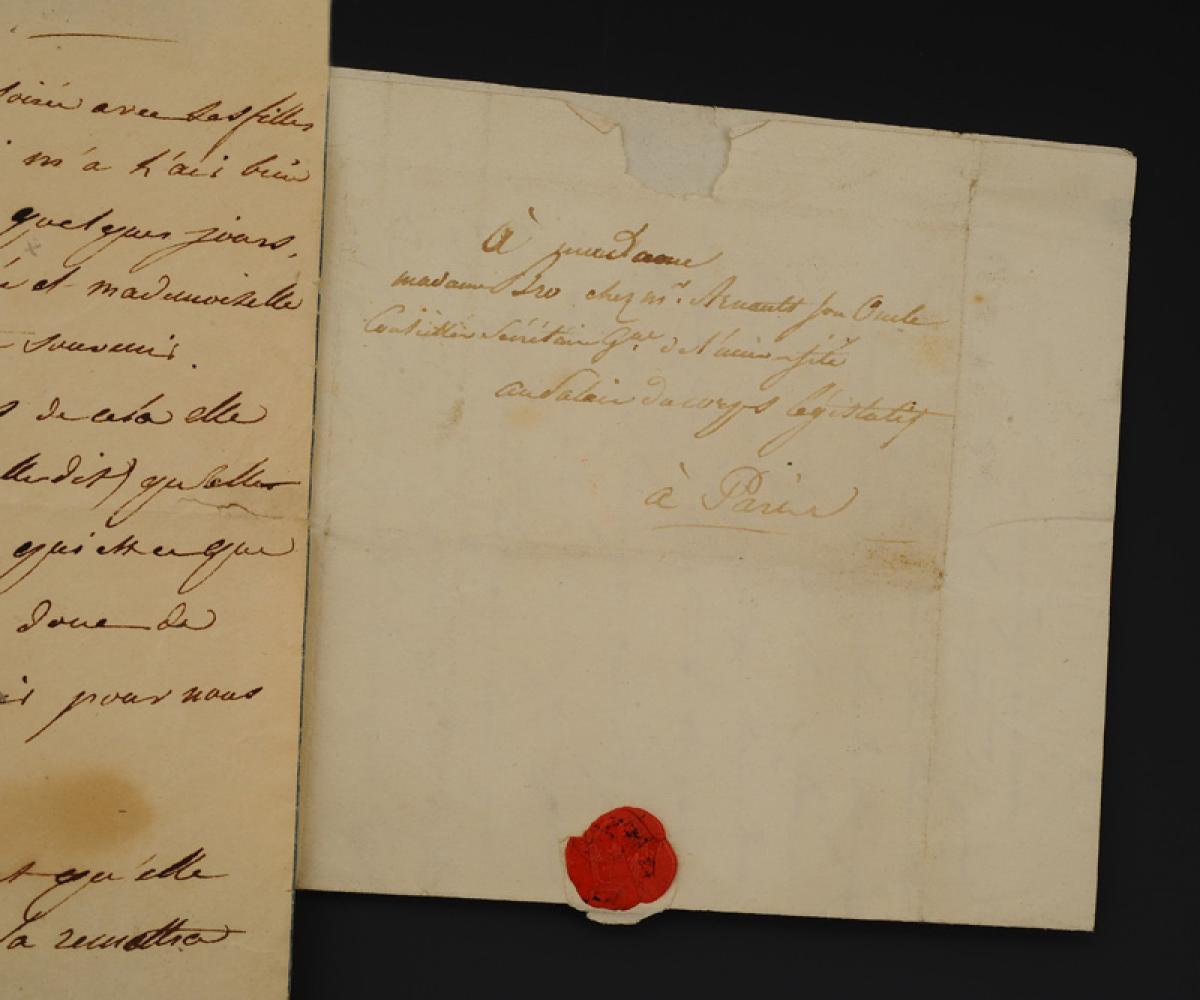 avec ses filles
m'a
quelques jours,
et mademoiselle
souvenir.
de cela elle
dit) qu'elle
que
donc de
pour nous
qu'elle
la remettra
À madame
madame chez mr. Arnault son Oncle
Conseiller Secrétaire Gral. de l'université
au Palais du corps législatif
à Paris